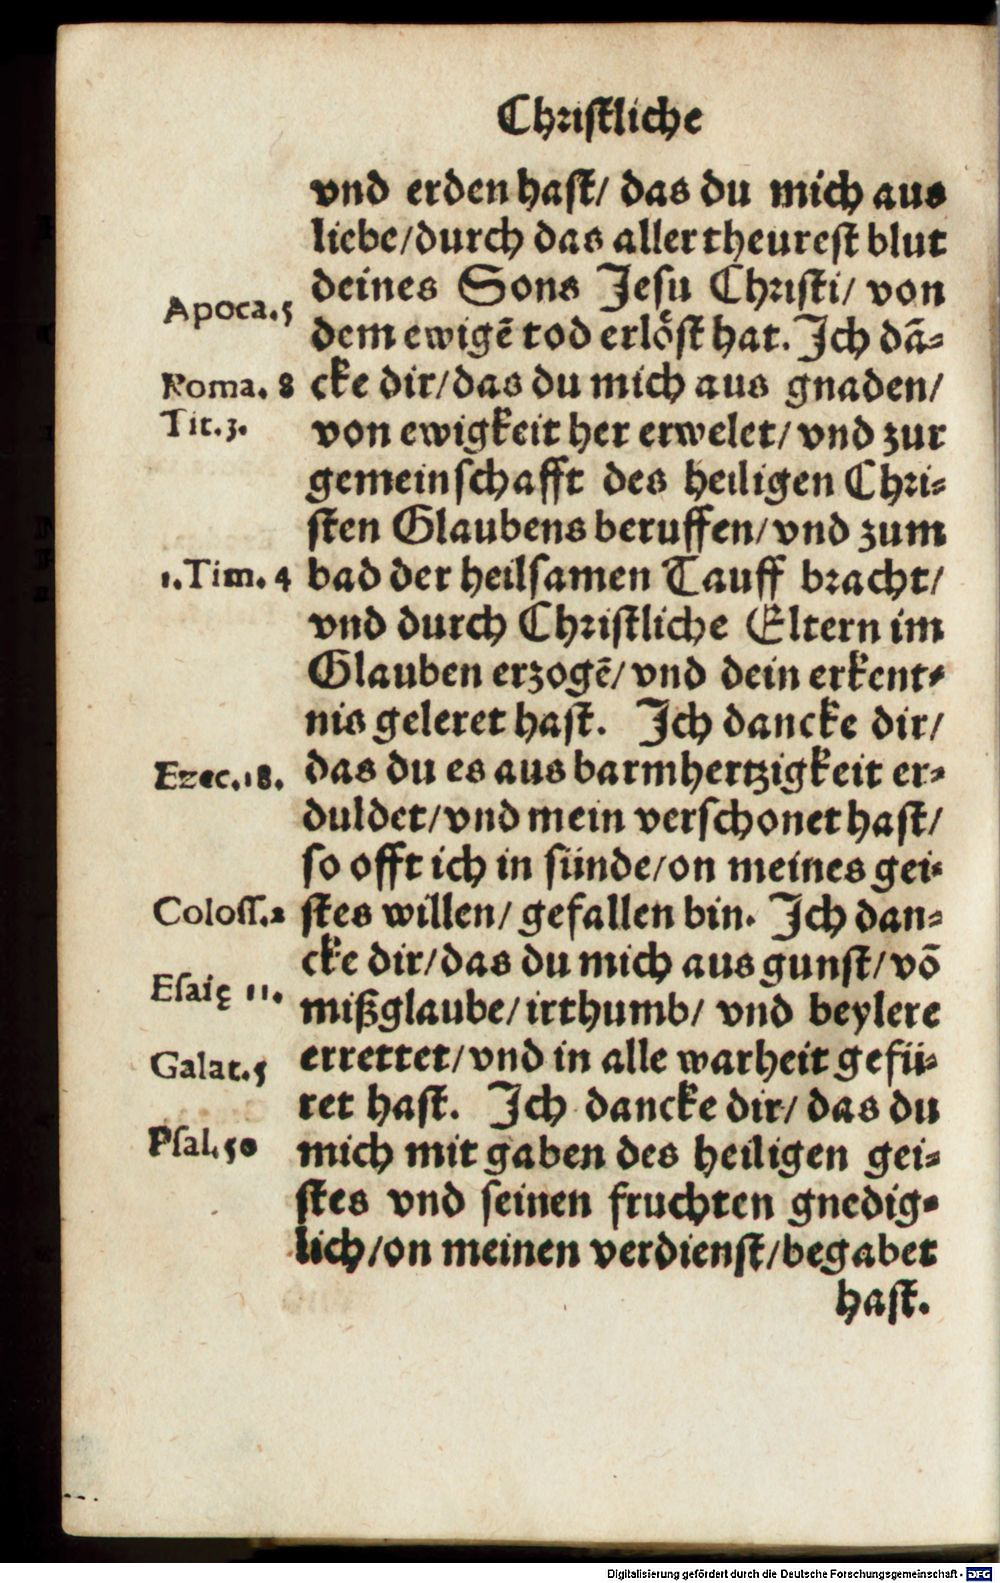 Christliche
vnd erden hast/ das du mich aus
liebe/durch das allertheurest blut
deines Sons Jesu Christi/ von
Apoca.5
dem ewigē tod erlöst hat. Ich dā-
Roma. 8 cke dir/das du mich aus gnaden/
Tit.3. von ewigkeit her erwelet/ vnd zur
gemeinschafft des heiligen Chri-
sten Glaubens beruffen/vnd zum
1.Tim. 4 bad der heilsamen Tauff bracht/
vnd durch Christliche Eltern im
Glauben erzogē/ vnd dein erkent-
nis geleret hast. Ich dancke dir/
Ezec.18. das du es aus barmhertzigkeit er-
duldet/vnd mein verschonet hast/
so offt ich in sünde/on meines gei-
Coloss.2 stes willen/ gefallen bin. Ich dan-
cke dir/das du mich aus gunst/võ
Esaię 11. mißglaube/irthumb/ vnd beylere
Galat.5 errettet/vnd in alle warheit gefü-
ret hast. Ich dancke dir/ das du
Psal.50 mich mit gaben des heiligen gei-
stes vnd seinen fruchten gnedig-
lich/on meinen verdienst/begabet
hast.
Digitalisierung gefördert durch die Deutsche Forschungsgemeinschaft - DFG